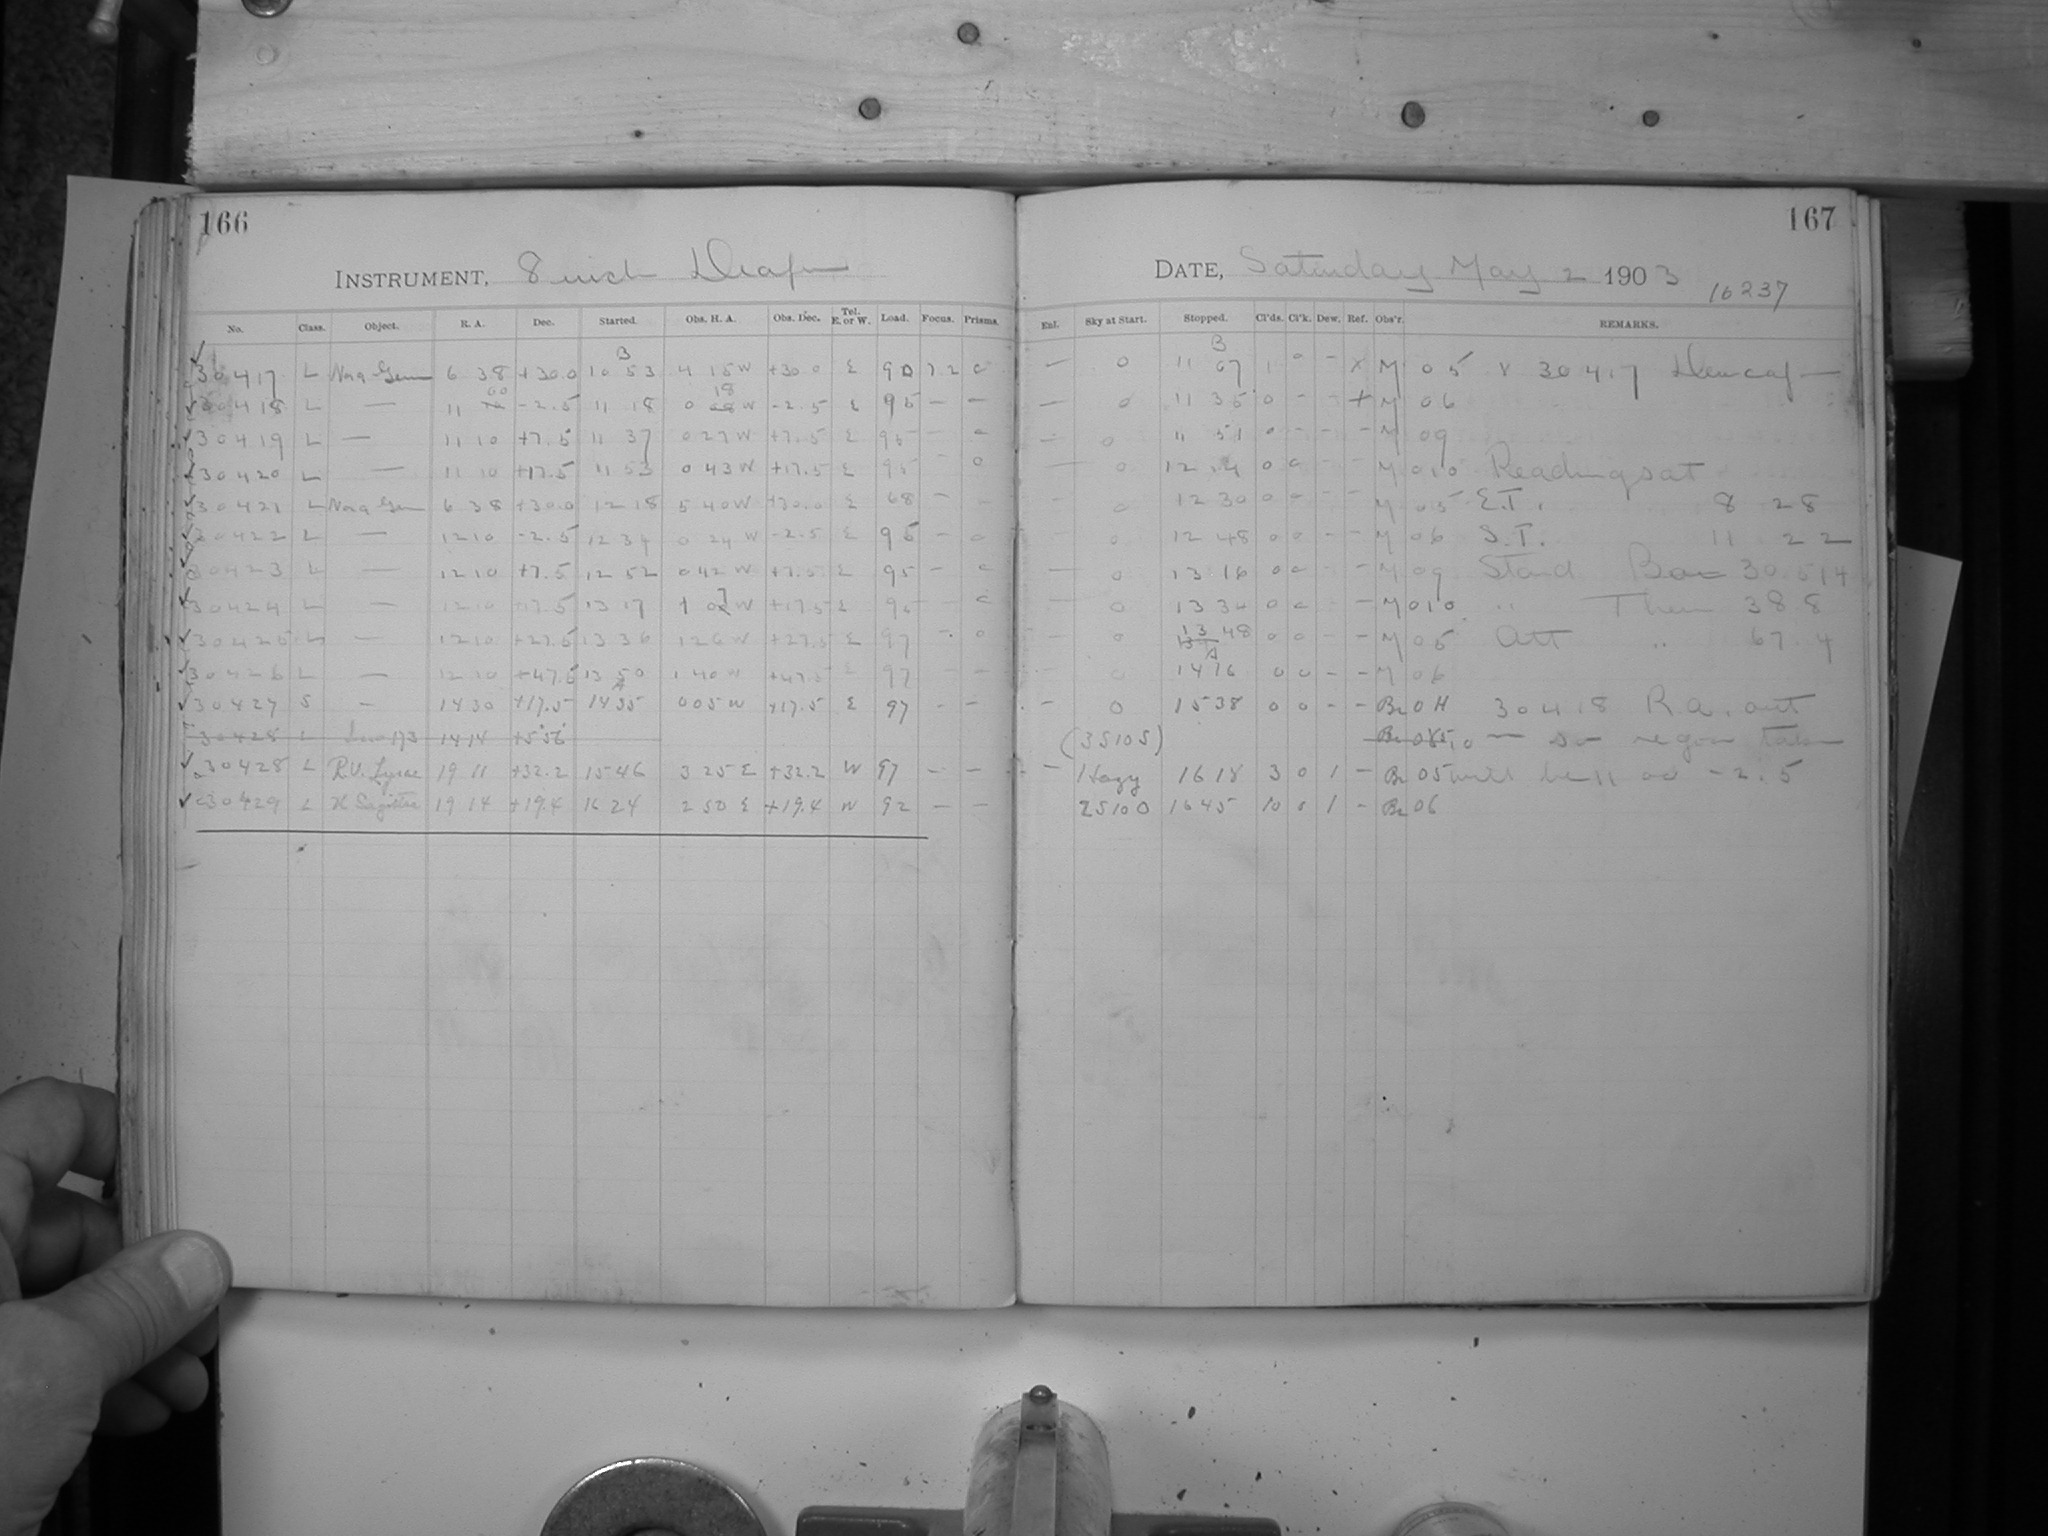 166
INSTRUMENT, 8 inch Draper
No. Class. Object. R. A. Dec. Started. Obs. H. A. Obs. Dec. Tel. E. or W. Load. Focus. Prisms.
30417 L Nova Gem 6 38 +30.0 10 53 4 15 W +30.0 E 90 7.2 0
30418 L — 11 00 -2.5 11 18 0 18 W -2.5 E 95 — —
30419 L — 11 10 +7.5 11 37 0 27 W +7.5 E 95 - 0
30420 L — 11 10 +17.5 11 53 0 43 W +17.5 E 95 - 0
30421 L Nova Gem 6 38 +30.0 12 18 5 40 W +30.0 E 68 - -
30422 L — 12 10 -2.5 12 34 0 24 W -2.5 E 95 - 0
30423 L — 12 10 +7.5 12 52 0 42 W +7.5 E 95 - 0
30424 L — 12 10 +17.5 13 17 1 07 W +17.5 E 95 0
30425 L — 12 10 +27.5 13 36 1 26 W +27.5 E 97 - 0
30426 L — 12 10 +47.5 13 50 1 40 W +47.5 E 97 - -
30427 S — 14 30 +17.5 14 35 0 05 W +17.5 E 97 - -
30428 L 14 14 +5 56
30428 L R.U. Lyrae 19 11 +32.2 15 46 3 25 E +32.2 W 97 - -
30429 L X Sagittae 19 14 +19.4 16 24 2 50 E +19.4 W 92 - -
167
DATE, Saturday May 2 1903
16237
Enl. Sky at Start. Stopped. Cl'ds. Cl'k. Dew. Ref. Obs'r. REMARKS.
— 0 11 07 1 0 - X M 05 X 30417 Dewcap
— 0 11 35 0 - - + M 06
— 0 11 51 0 - - - M 09
— 0 12 14 0 0 - - M 010 Readings at
0 12 30 0 0 - - M 05 E.T. 8 28
0 12 48 0 0 - - M 06 S.T. 11 22
— 0 13 16 0 0 - - M 09 Stand Bar 30.514
0 13 34 0 0 - M 010 " Ther 38 8
- 0 13 48 0 0 - - M 05 Att " 67.4
- 0 14 16 0 0 - - M 06
- 0 15 38 0 0 - - Br 0H 30418 R.a. out
(35105) Br 10 — so region taken
- Hazy 16 18 3 0 1 - Br 05 will be 11 00 -2.5
25100 16 45 10 0 1 - Br 06